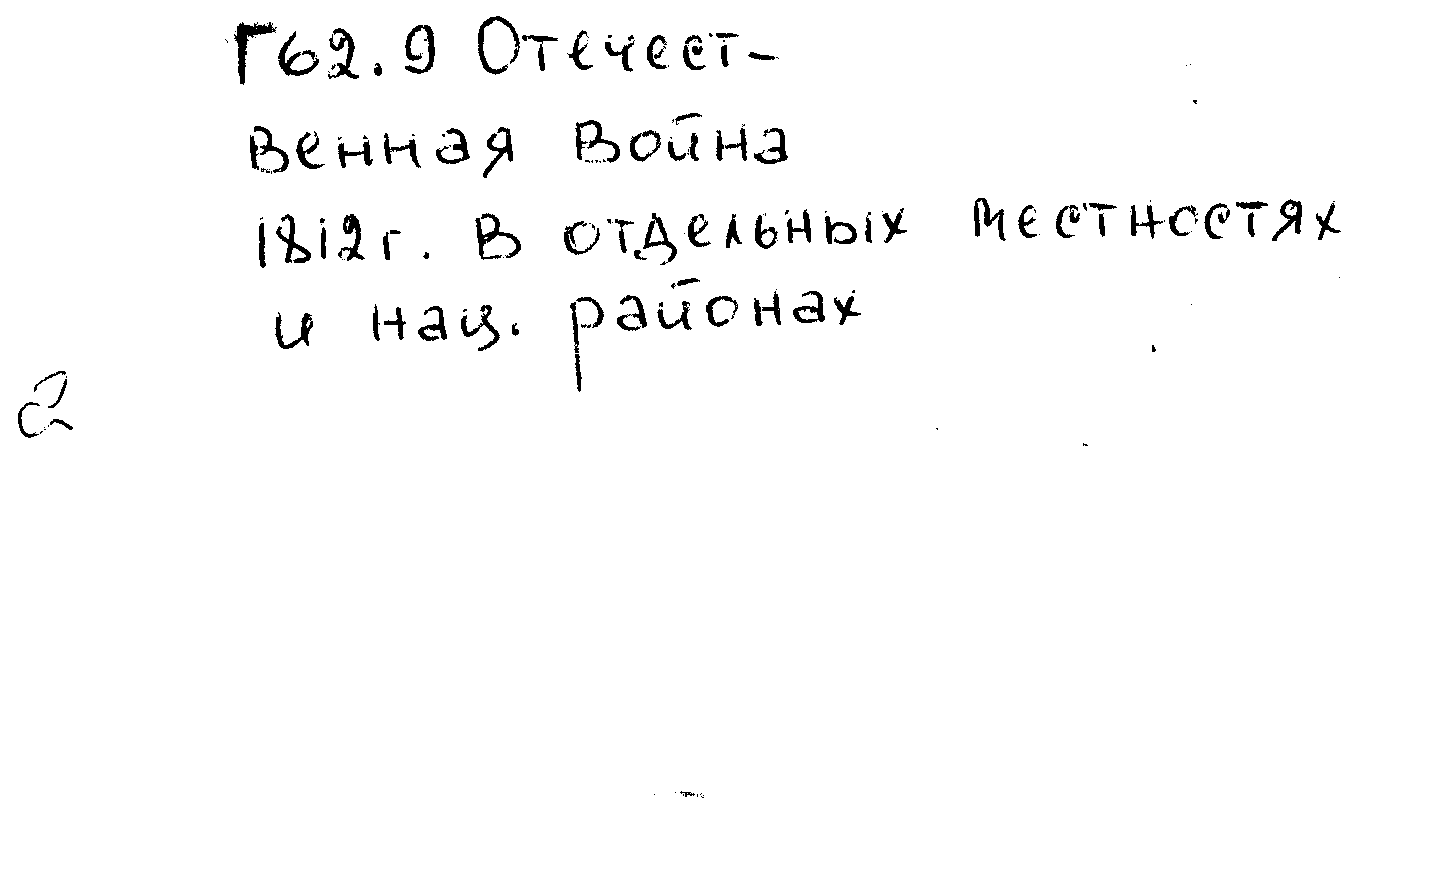 Г62.9 Отечест-
венная война
1812г. в отдельных местностях
и нац. районах